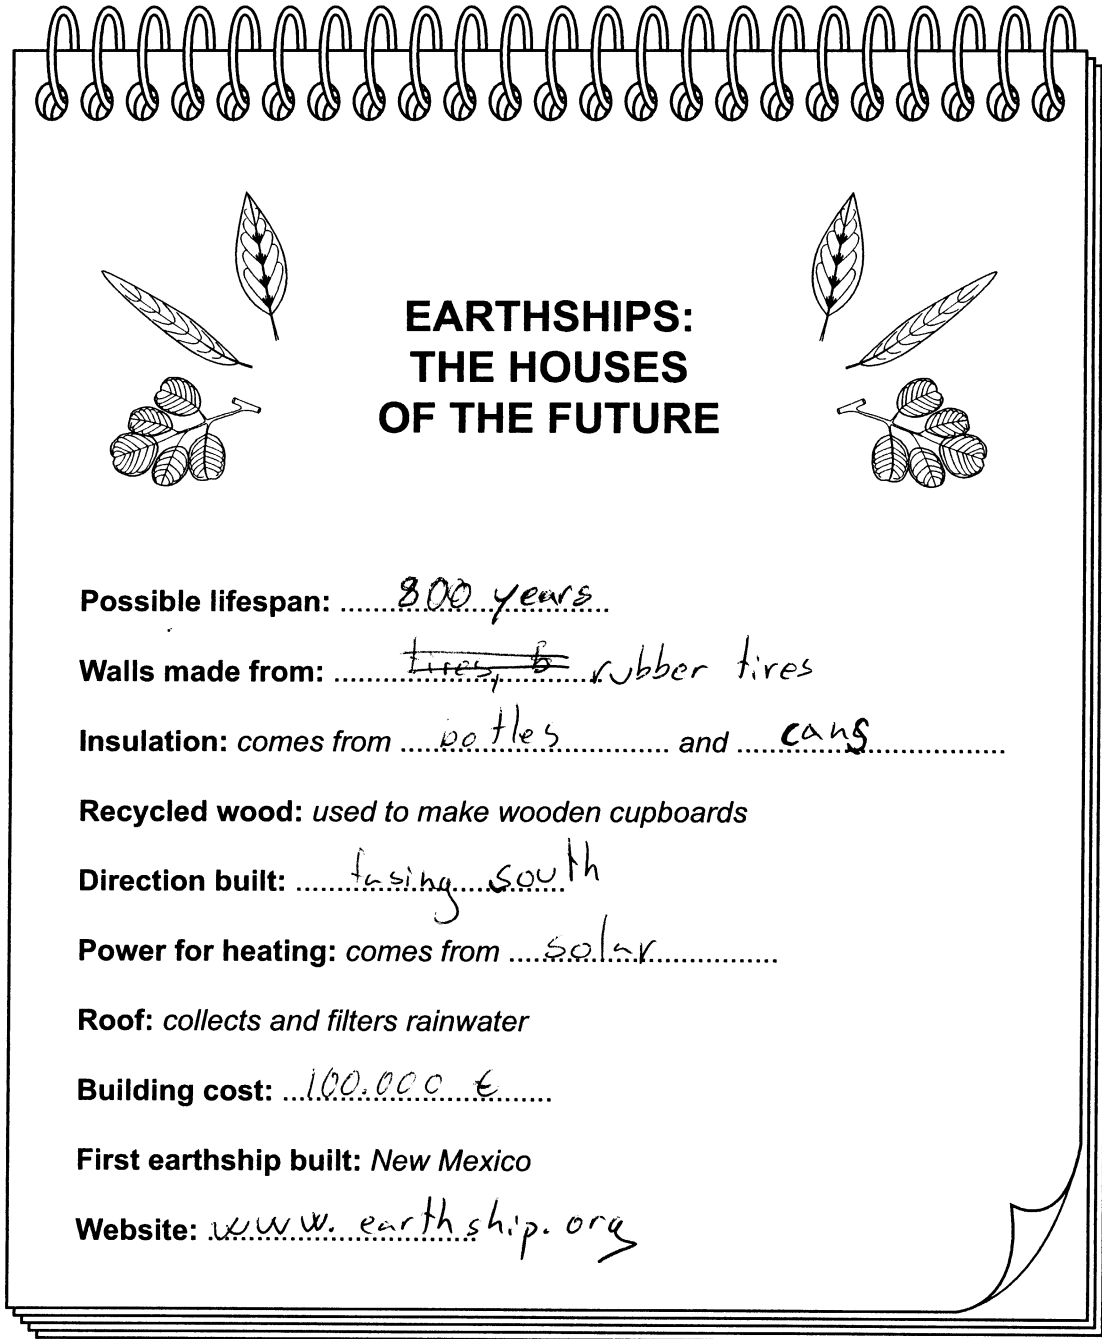 EARTHSHIPS:
THE HOUSES
OF THE FUTURE
Possible lifespan: 800 years
Walls made from: tires, b rubber tires
Insulation: comes from botles and cans
Recycled wood: used to make wooden cupboards
Direction built: fasing south
Power for heating: comes from solar
Roof: collects and filters rainwater
Building cost: 100.000 €
First earthship built: New Mexico
Website: www.earthship.org